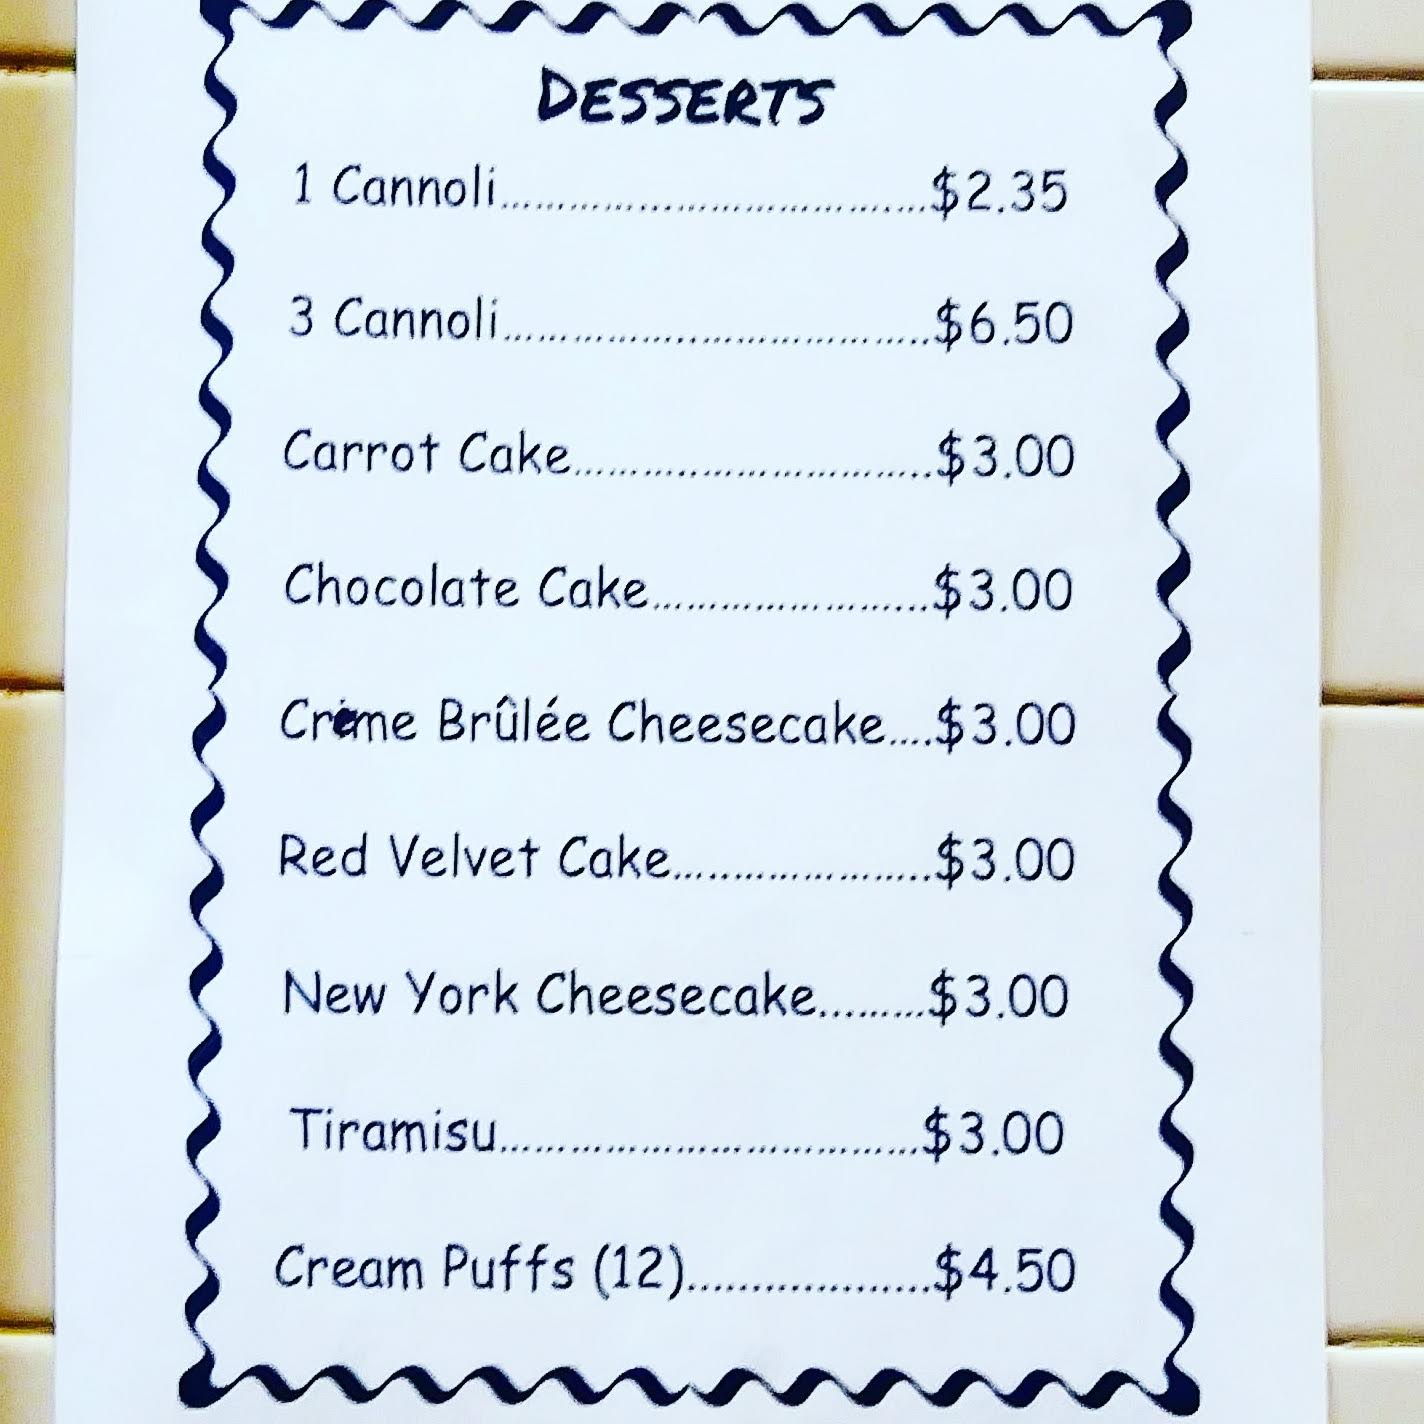 DESSERTS
1 Cannoli........................................$2.35
3 Cannoli........................................$6.50
Carrot Cake..................................$3.00
Chocolate Cake..........................$3.00
Crème Brûlée Cheesecake....$3.00
Red Velvet Cake........................$3.00
New York Cheesecake.........$3.00
Tiramisu.......................................$3.00
Cream Puffs (12)....................$4.50